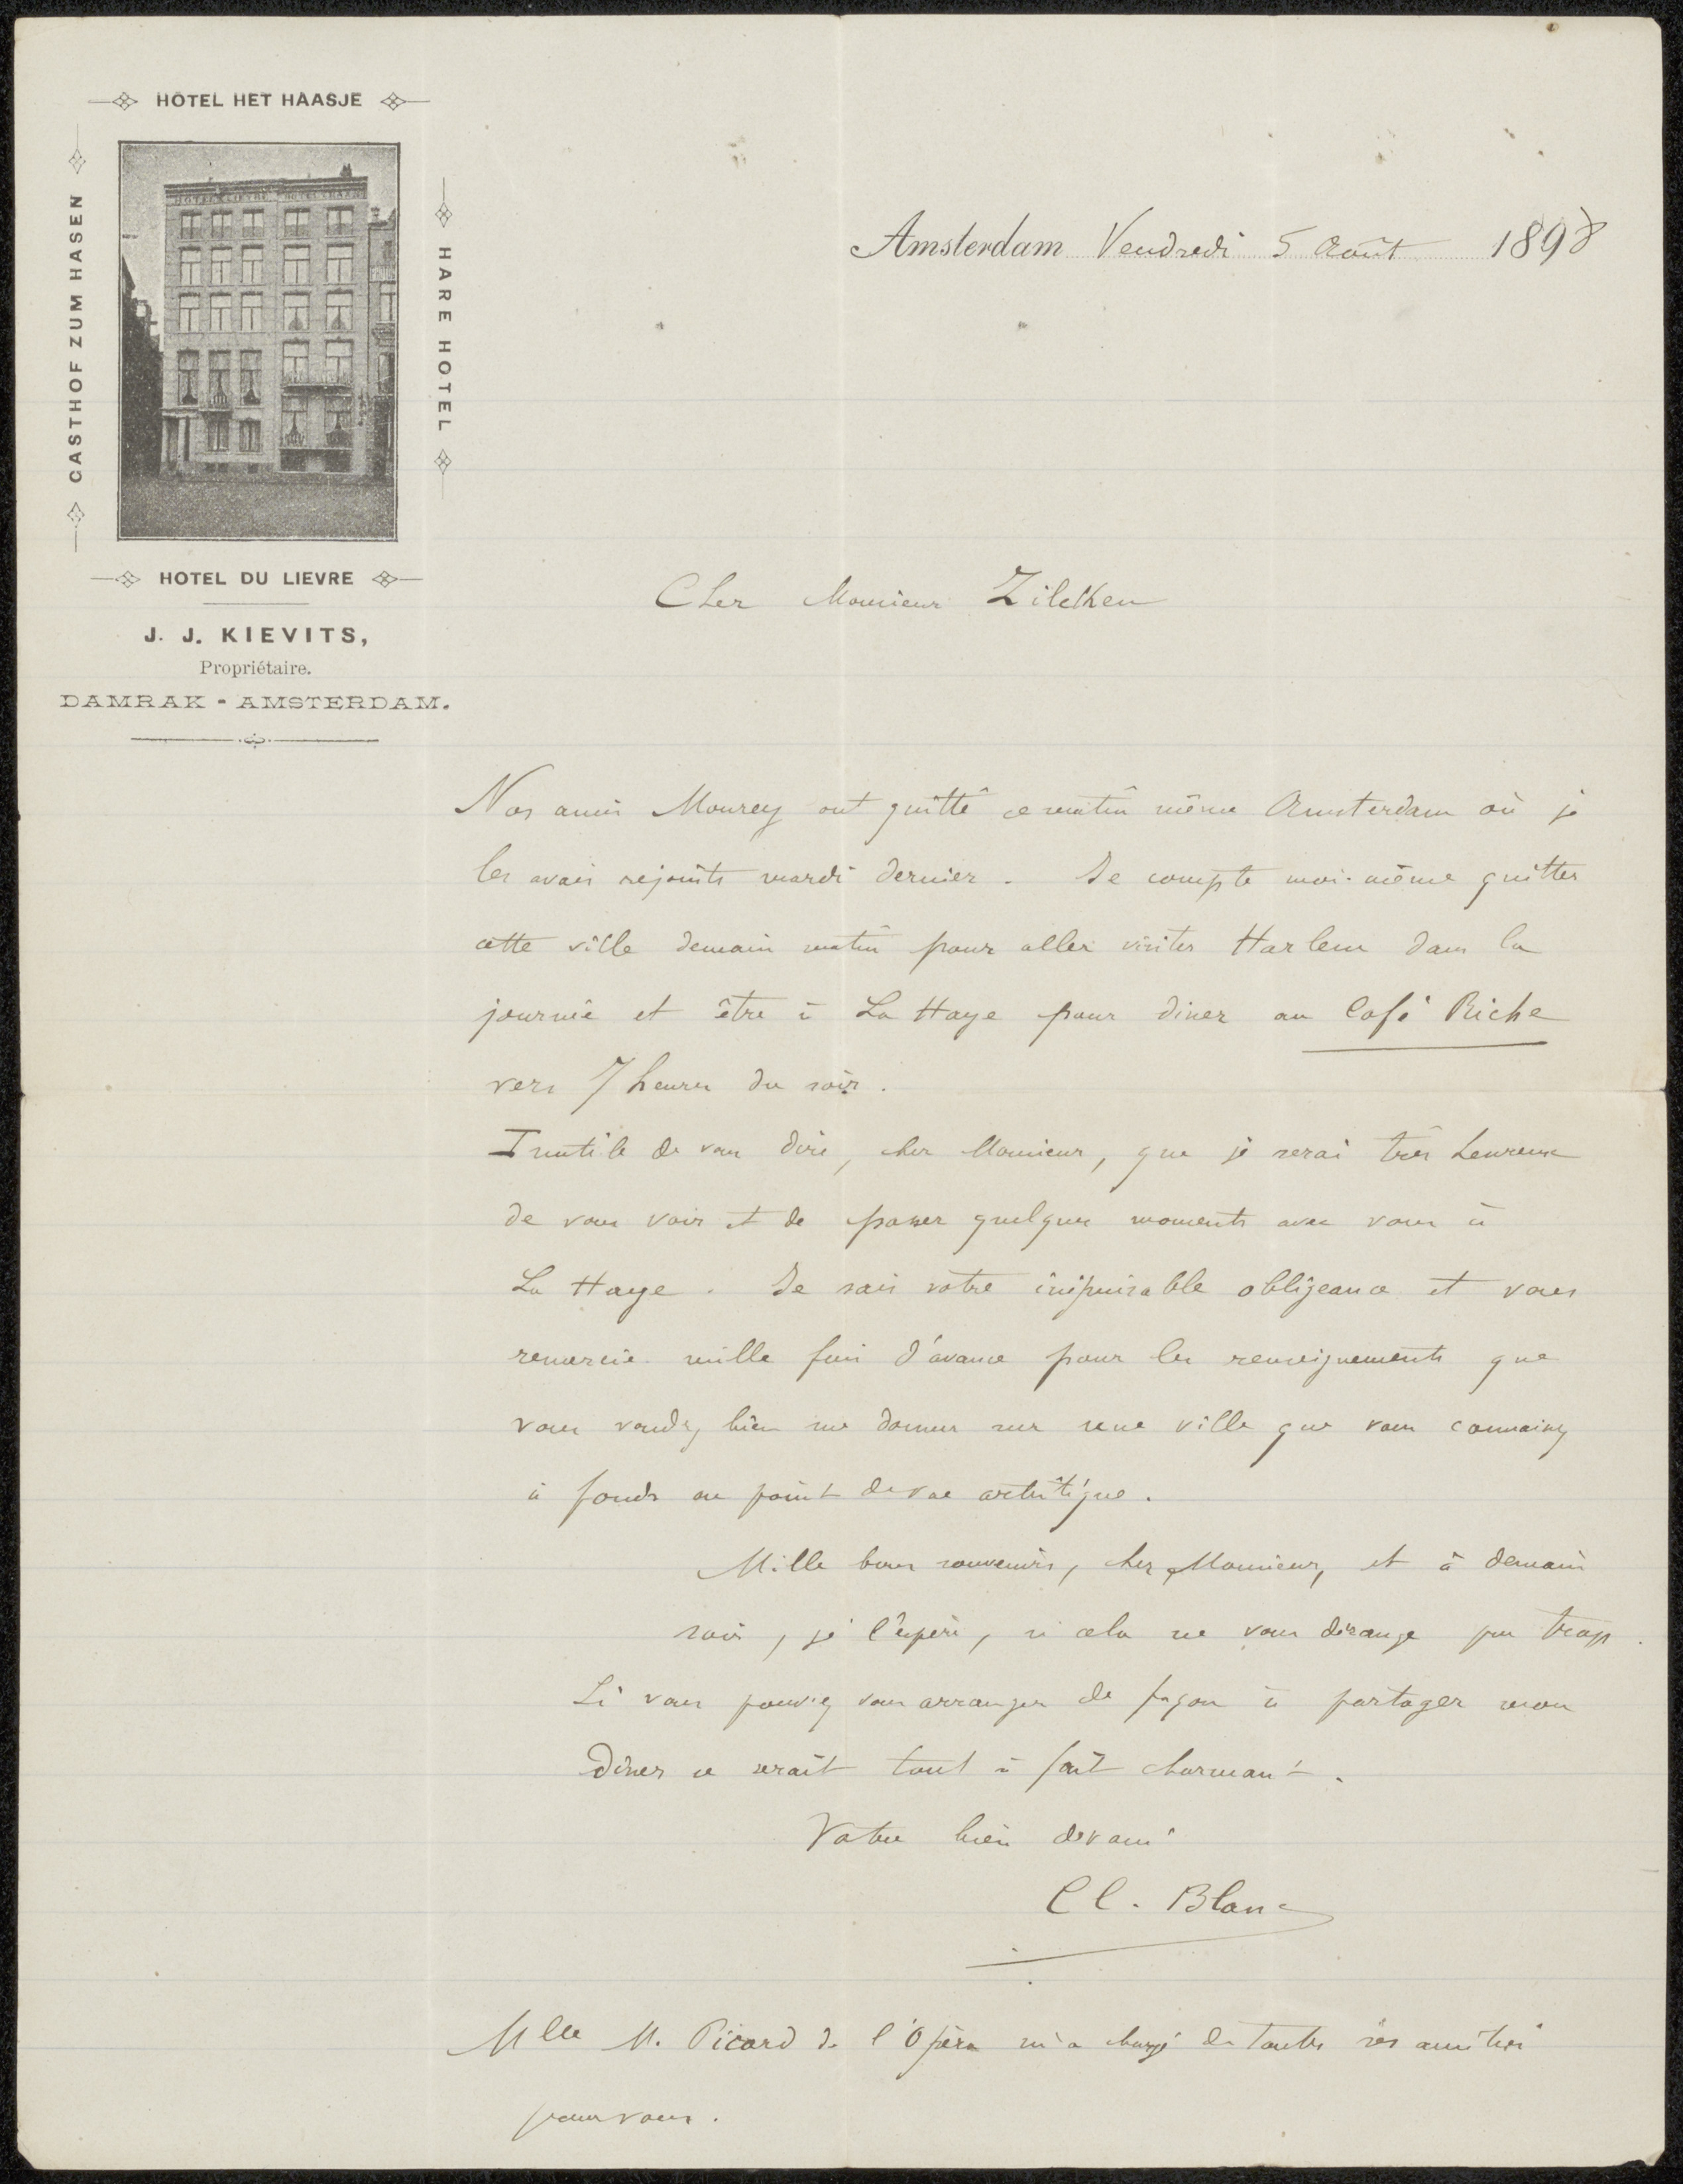 HÔTEL HET HAASJE
CASTHOF ZUM HASEN
HARE HOTEL
HOTEL DU LIEVRE
J. J. KIEVITS,
Propriétaire.
DAMRAK - AMSTERDAM.
Amsterdam Vendredi 5 Août 1898
Cher Monsieur Zilcken
Nos amis Mourey ont quitté ce matin même Amsterdam où je
les avais rejoints mardi dernier. Je compte moi-même quitter
cette ville demain matin pour aller visiter Harlem dans la
journée et être à La Haye pour diner au Café Riche
vers 7 heures du soir.
Inutile de vous dire, cher Monsieur, que je serai très heureux
de vous voir et de passer quelques moments avec vous à
La Haye. Je sais votre inépuisable obligeance et vous
remercie mille fois d'avance pour les renseignements que
vous voudrez bien me donner sur une ville que vous connaissez
à fonds au point de vue artistique.
Mille bons souvenirs, cher Monsieur, et à demain
soir, je l'espère, si cela ne vous dérange pas trop.
Si vous pouviez vous arranger de façon à partager mon
diner ce serait tout à fait charmant.
Votre bien dévoué
Cl. Blanc
Mlle M. Picard de l'Opéra m'a chargé de toutes ses amitiés
pour vous.